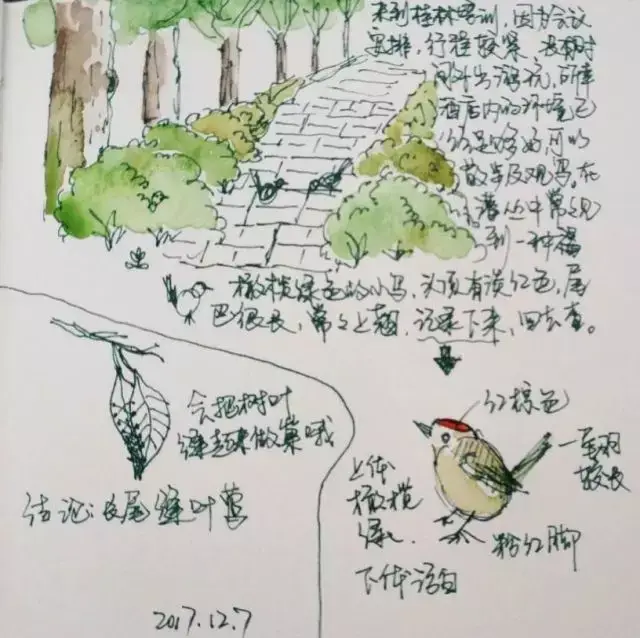 来到桂林培训，因为会议
安排，行程较紧，没有时
间外出游玩，所幸
酒店内的环境已
散步及观鸟，在
灌丛中常常见
到一种
橄榄绿色的小鸟，头顶有淡红色，尾
巴很长，常常上翘，记录下来，回去查。
红棕色
会把树叶
缝起来做巢哦
尾羽
较长
上体
橄榄
绿
结论：长尾缝叶莺
粉红脚
下体淡白
2017.12.7